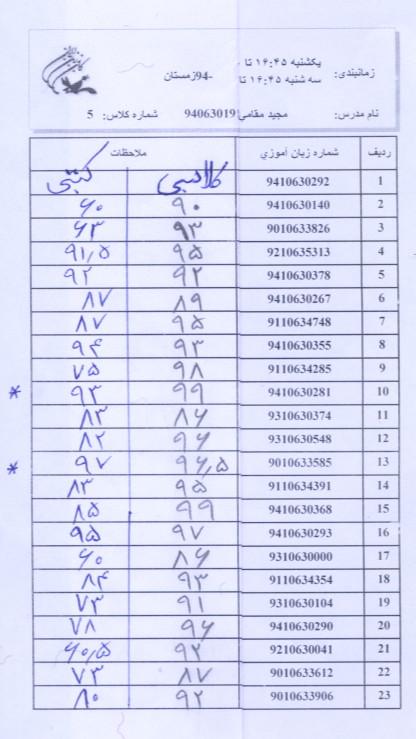 زمانبندی: یکشنبه ۱۶:۴۵ تا - 94زمستان
سه شنبه ۱۶:۴۵ تا
نام مدرس: مجید مقامی 94063019 شماره کلاس: 5
ردیف شماره زبان آموزي ملاحظات
1 9410630292 کلاسی کتبی
2 9410630140 ۹۰ ۶۰
3 9010633826 ۹۳ ۶۳
4 9210635313 ۹۵ ۹۱,۵
5 9410630378 ۹۲ ۹۲
6 9410630267 ۸۹ ۸۷
7 9110634748 ۹۵ ۸۷
8 9410630355 ۹۳ ۹۴
9 9110634285 ۹۸ ۷۵
10 9410630281 ۹۹ ۹۳ *
11 9310630374 ۸۶ ۸۳
12 9310630548 ۹۶ ۸۲
13 9010633585 ۹۶,۵ ۹۷ *
14 9110634391 ۹۵ ۸۳
15 9410630368 ۹۹ ۸۵
16 9410630293 ۹۷ ۹۵
17 9310630000 ۸۶ ۶۰
18 9110634354 ۹۳ ۸۴
19 9310630104 ۹۱ ۷۳
20 9410630290 ۹۶ ۷۸
21 9210630041 ۹۲ ۶۰,۵
22 9010633612 ۸۷ ۷۳
23 9010633906 ۹۲ ۸۰